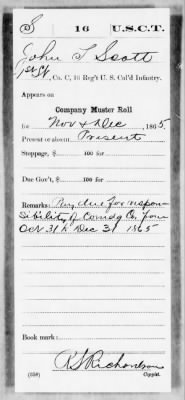 S 16 U.S.C.T.
John T Scott
1st Sgt, Co. C, 16 Reg't U. S. Col'd Infantry.
Appears on
Company Muster Roll
for Nov & Dec, 1865.
Present or absent Present
Stoppage, $ 100 for
Due Gov't, $ 100 for
Remarks: Pay due for respon
sibility of Comdg Co. from
Oct 31 to Dec 31 1865
Book mark:
R S Richardson
(358) Copyist.